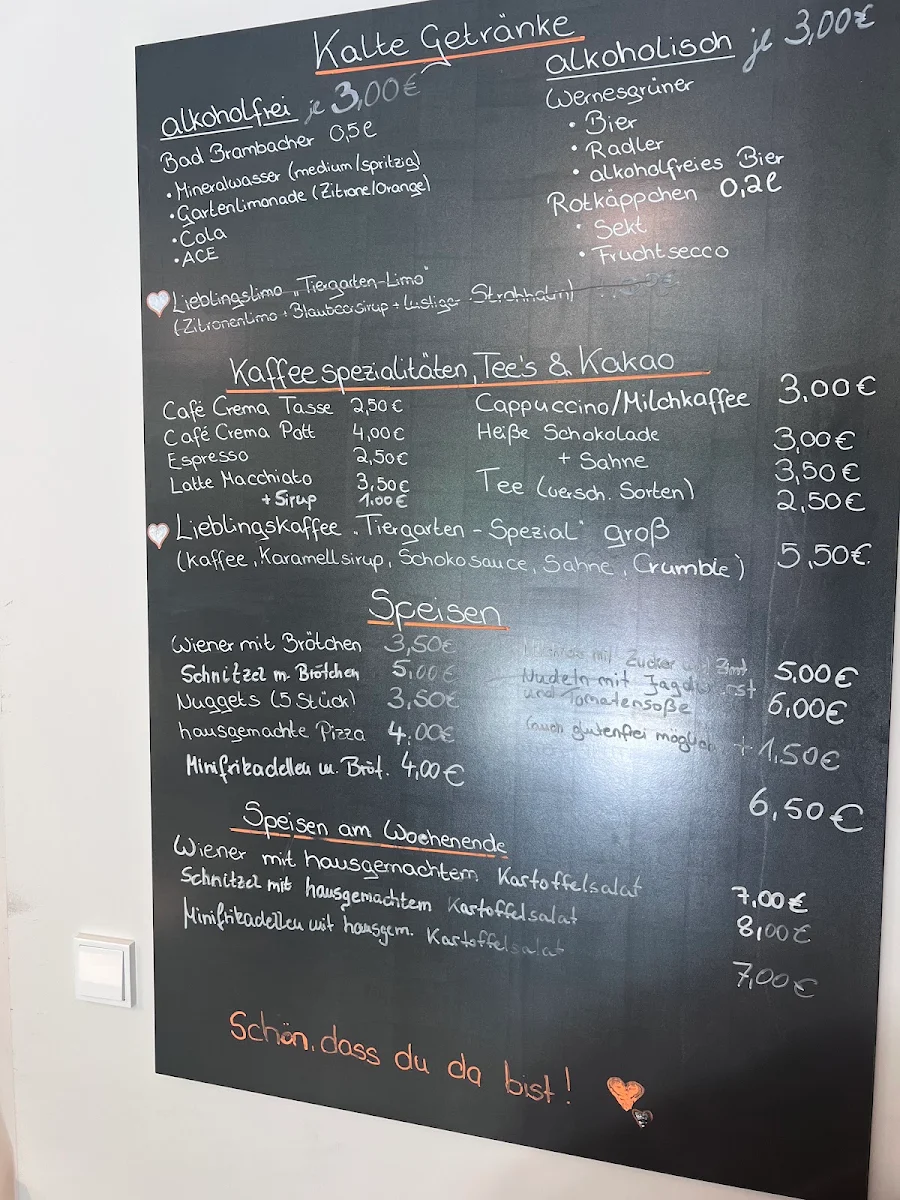 Kalte Getränke
alkoholfrei je 3,00€
Bad Brambacher 0,5l
• Mineralwasser (medium/spritzig)
• Gartenlimonade (Zitrone/Orange)
• Cola
• ACE
alkoholisch je 3,00€
Wernesgrüner
• Bier
• Radler
• alkoholfreies Bier
Rotkäppchen 0,2l
• Sekt
• Fruchtsecco
Lieblingslimo „Tiergarten-Limo"
(Zitronenlimo + Blaubeersirup + lustiger Strohhalm)
Kaffeespezialitäten, Tee's & Kakao
Café Crema Tasse 2,50€
Café Crema Pott 4,00€
Espresso 2,50€
Latte Macchiato 3,50€
+ Sirup 1.00€
Cappuccino/Milchkaffee 3,00€
Heiße Schokolade 3,00€
+ Sahne 3,50€
Tee (versch. Sorten) 2,50€
Lieblingskaffee „Tiergarten - Spezial" groß
(Kaffee, Karamellsirup, Schokosauce, Sahne, Crumble) 5,50€
Speisen
Wiener mit Brötchen 3,50€
Schnitzel m. Brötchen 5,00€
Nuggets (5 Stück) 3,50€
hausgemachte Pizza 4,00€
Minifrikadellen m. Bröt. 4,00€
mit Zucker Zimt 5,00€
Nudeln mit Jagdwurst 6,00€
und Tomatensoße
(auch glutenfrei möglich) + 1,50€
6,50€
Speisen am Wochenende
Wiener mit hausgemachtem Kartoffelsalat 7,00€
Schnitzel mit hausgemachtem Kartoffelsalat 8,00€
Minifrikadellen mit hausgem. Kartoffelsalat 7,00€
Schön, dass du da bist!